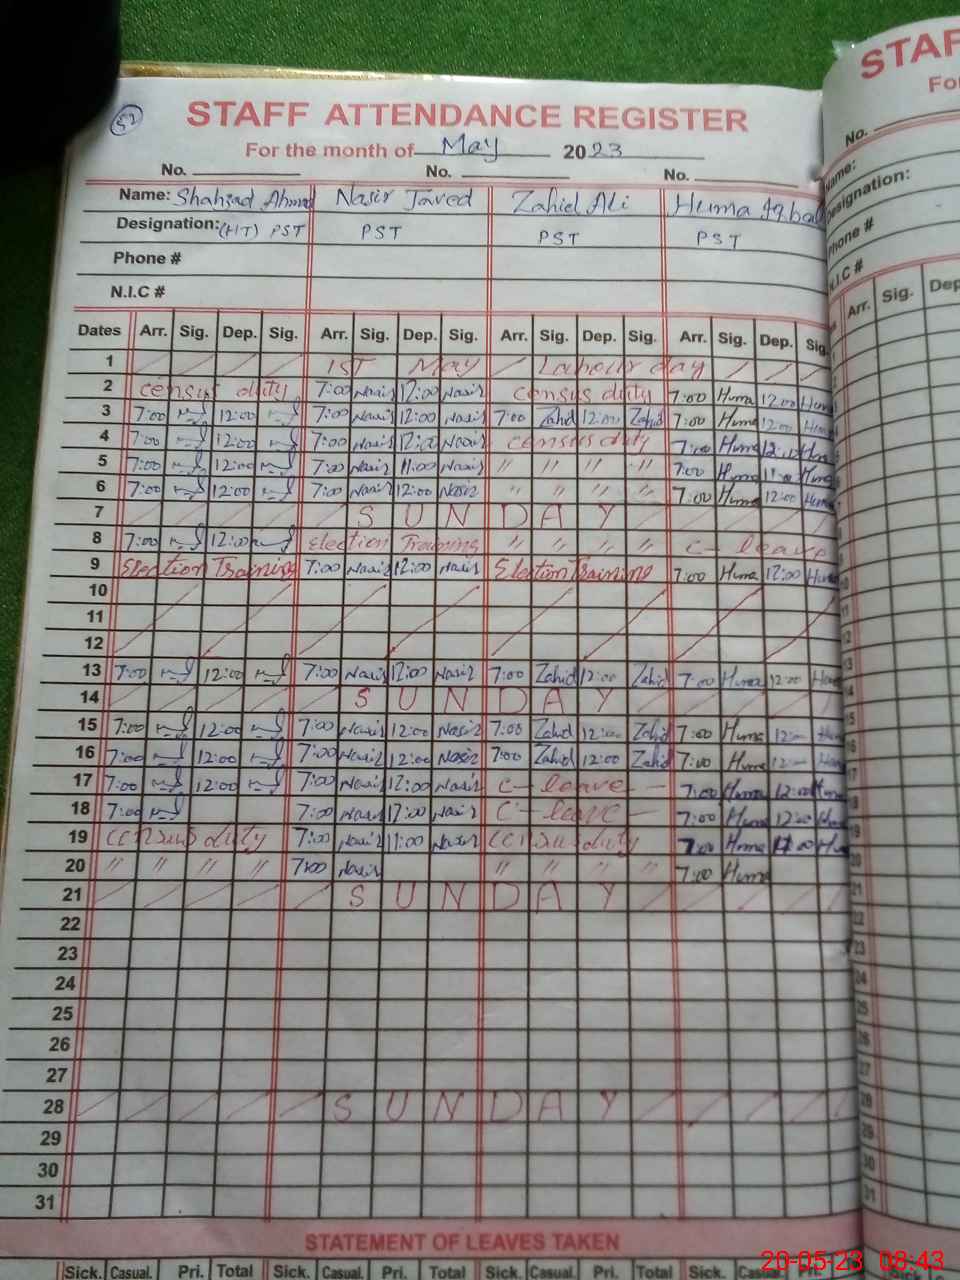 STAF
For
No.
Name:
Designation:
Phone #
N.I.C #
Arr. Sig. Dep
52
STAFF ATTENDANCE REGISTER
For the month of May 2023
No. No. No.
Name: Shahzad Ahmad Nasir Javed Zahid Ali Huma Iqbal
Designation: (HT) PST PST PST PST
Phone #
N.I.C #
Dates Arr. Sig. Dep. Sig. Arr. Sig. Dep. Sig. Arr. Sig. Dep. Sig. Arr. Sig. Dep. Sig.
1 1ST May Labour day
2 census duty 7:00 Nasir 12:00 Nasir census duty 7:00 Huma 12:00 Huma
3 7:00 12:00 7:00 Nasir 12:00 Nasir 7:00 Zahid 12:00 Zahid 7:00 Huma 12:00 Huma
4 7:00 12:00 7:00 Nasir 12:00 Nasir census duty 7:00 Huma 12:00 Huma
5 7:00 12:00 7:00 Nasir 11:00 Nasir " " " " 7:00 Huma 11:00 Huma
6 7:00 12:00 7:00 Nasir 12:00 Nasir " " " " 7:00 Huma 12:00 Huma
7 S U N D A Y
8 7:00 12:00 Election Training " " " " C-leave
9 Election Training 7:00 Nasir 12:00 Nasir Election Training 7:00 Huma 12:00 Huma
10
11
12
13 7:00 12:00 7:00 Nasir 12:00 Nasir 7:00 Zahid 12:00 Zahid 7:00 Huma 12:00 Huma
14 S U N D A Y
15 7:00 12:00 7:00 Nasir 12:00 Nasir 7:00 Zahid 12:00 Zahid 7:00 Huma 12:00 Huma
16 7:00 12:00 7:00 Nasir 12:00 Nasir 7:00 Zahid 12:00 Zahid 7:00 Huma 12:00 Huma
17 7:00 12:00 7:00 Nasir 12:00 Nasir C-leave- 7:00 Huma 12:00 Huma
18 7:00 7:00 Nasir 12:00 Nasir C-leave- 7:00 Huma 12:00 Huma
19 census duty 7:00 Nasir 11:00 Nasir census duty 7:00 Huma 11:00 Huma
20 " " " " 7:00 Nasir " " " " 7:00 Huma
21 S U N D A Y
22
23
24
25
26
27
28 S U N D A Y
29
30
31
STATEMENT OF LEAVES TAKEN
Sick. Casual. Pri. Total Sick. Casual. Pri. Total Sick. Casual. Pri. Total Sick. Casual. Pri.
20-05-23 08:43